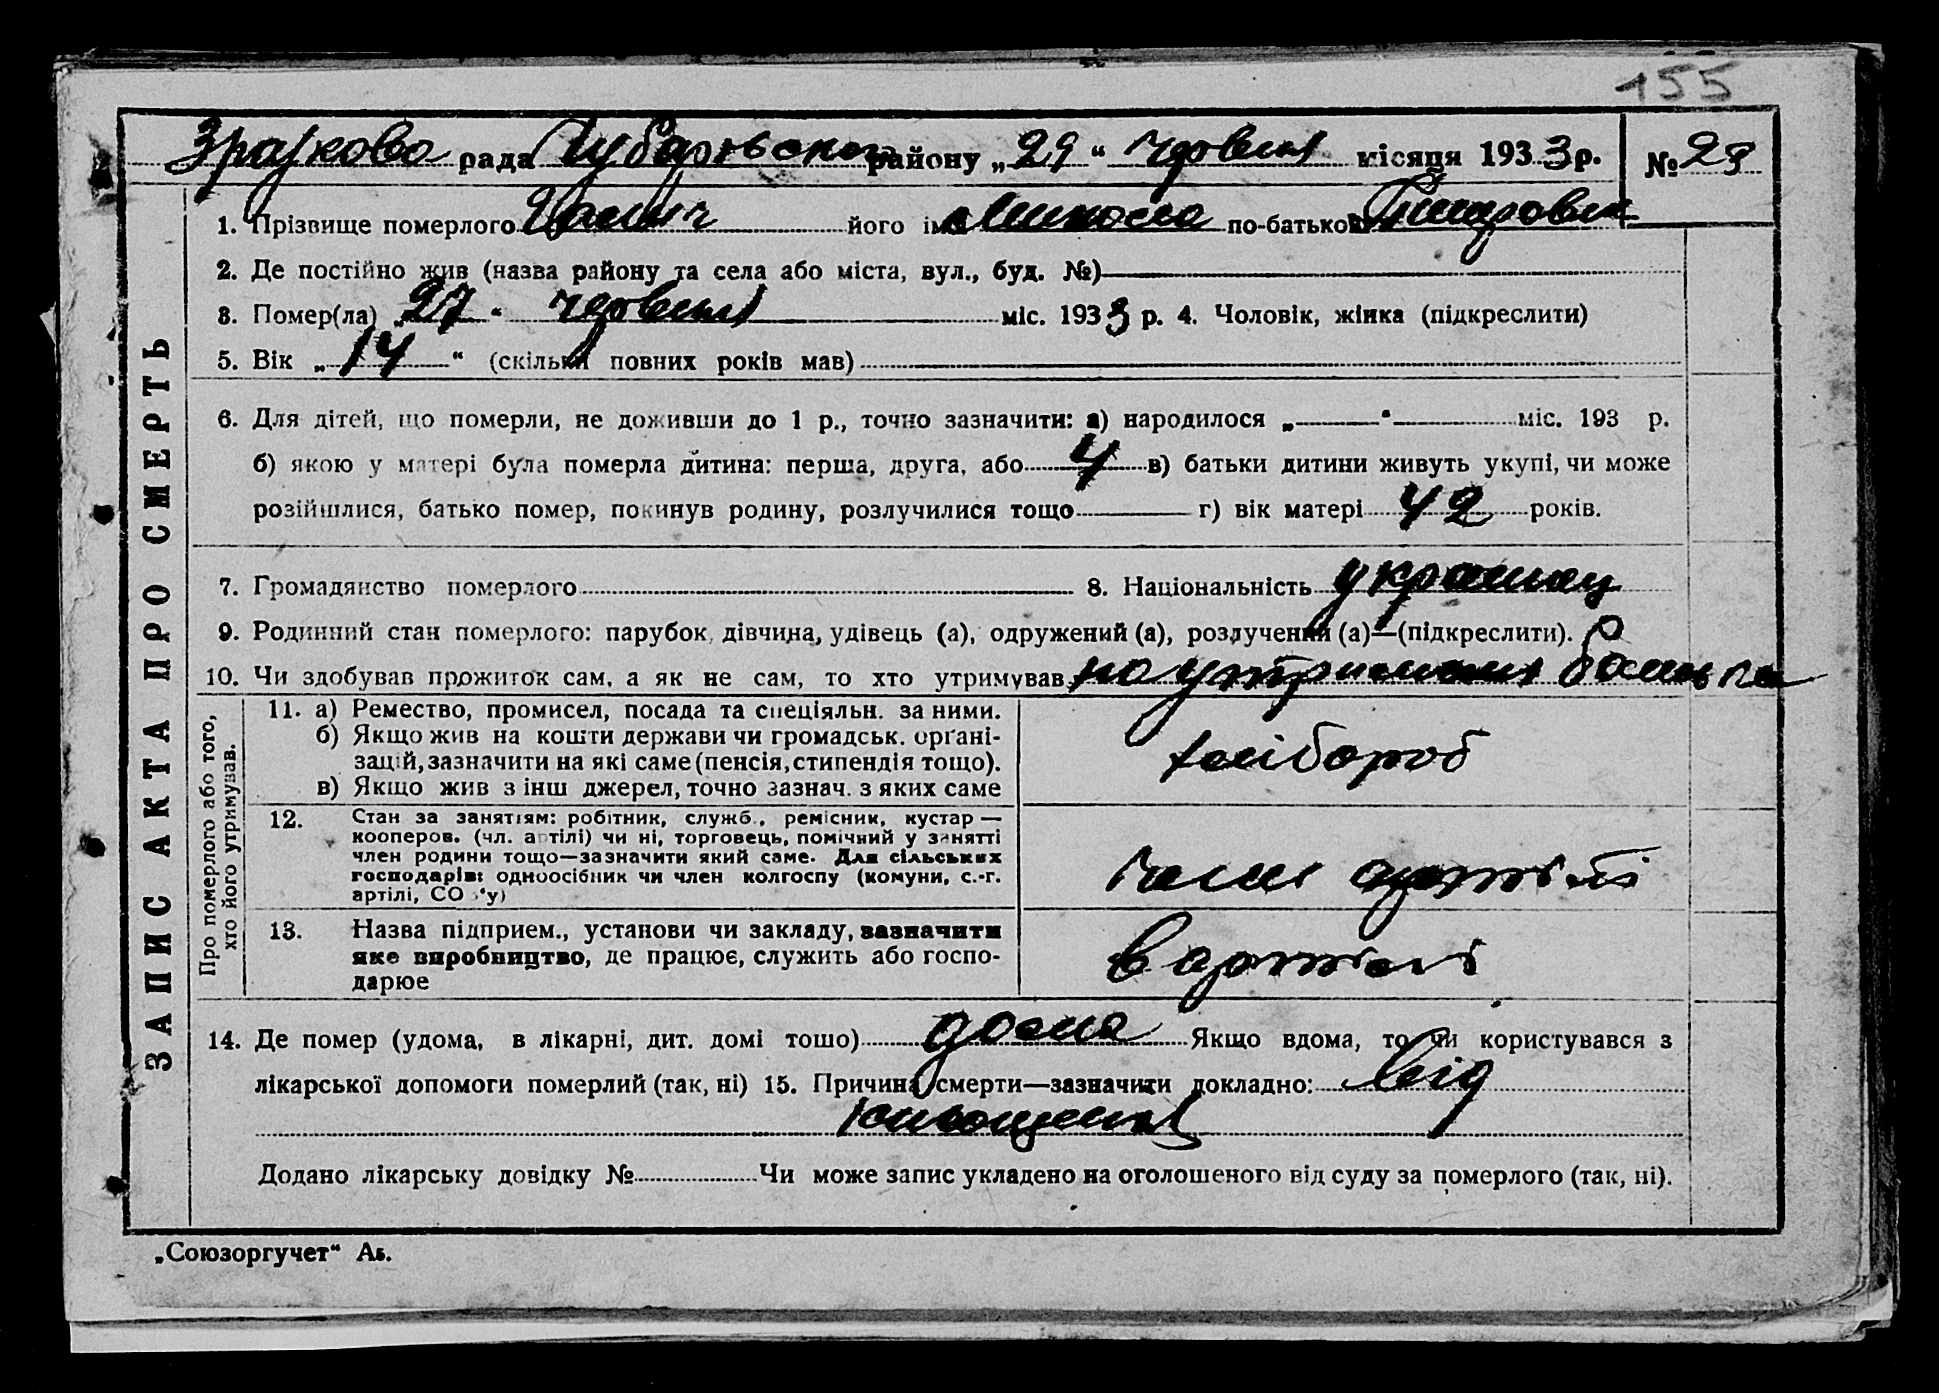 155
Зразкова рада Чубарівського району „29“ червня місяця 1933 р. № 23
1. Прізвище померлого його ім'я Микола по-батькові
2. Де постійно жив (назва району та села або міста, вул., буд. №)
3. Помер(ла) „27“ червня міс. 1933 р. 4. Чоловік, жінка (підкреслити)
5. Вік „14“ (скільки повних років мав)
6. Для дітей, що померли, не доживши до 1 р., точно зазначити: а) народилося „ “ міс. 193 р.
б) якою у матері була померла дитина: перша, друга, або 4 в) батьки дитини живуть укупі, чи може
розійшлися, батько помер, покинув родину, розлучилися тощо г) вік матері 42 років.
7. Громадянство померлого 8. Національність українець
9. Родинний стан померлого: парубок, дівчина, удівець (а), одружений (а), розлучений (а)—(підкреслити).
10. Чи здобував прожиток сам, а як не сам, то хто утримував на утриманні батька
Про померлого або того,
хто його утримував.
11. а) Ремество, промисел, посада та спеціяльн. за ними.
б) Якщо жив на кошти держави чи громадськ. орґані-
зацій, зазначити на які саме (пенсія, стипендія тощо).
в) Якщо жив з інш джерел, точно зазнач. з яких саме
хлібороб
12. Стан за заняттям: робітник, служб., ремісник, кустар—
кооперов. (чл. артілі) чи ні, торговець, помічний у занятті
член родини тощо—зазначити який саме. Для сільських
господарів: одноосібник чи член колгоспу (комуни, с.-г.
артілі, СО у)
член артілі
13. Назва підприєм., установи чи закладу, зазначити
яке виробництво, де працює, служить або госпо-
дарює
в артілі
14. Де помер (удома, в лікарні, дит. домі тощо) дома Якщо вдома, то чи користувався з
лікарської допомоги померлий (так, ні) 15. Причина смерти—зазначити докладно: від
Додано лікарську довідку № Чи може запис укладено на оголошеного від суду за померлого (так, ні).
ЗАПИС АКТА ПРО СМЕРТЬ
„Союзоргучет“ Аз.